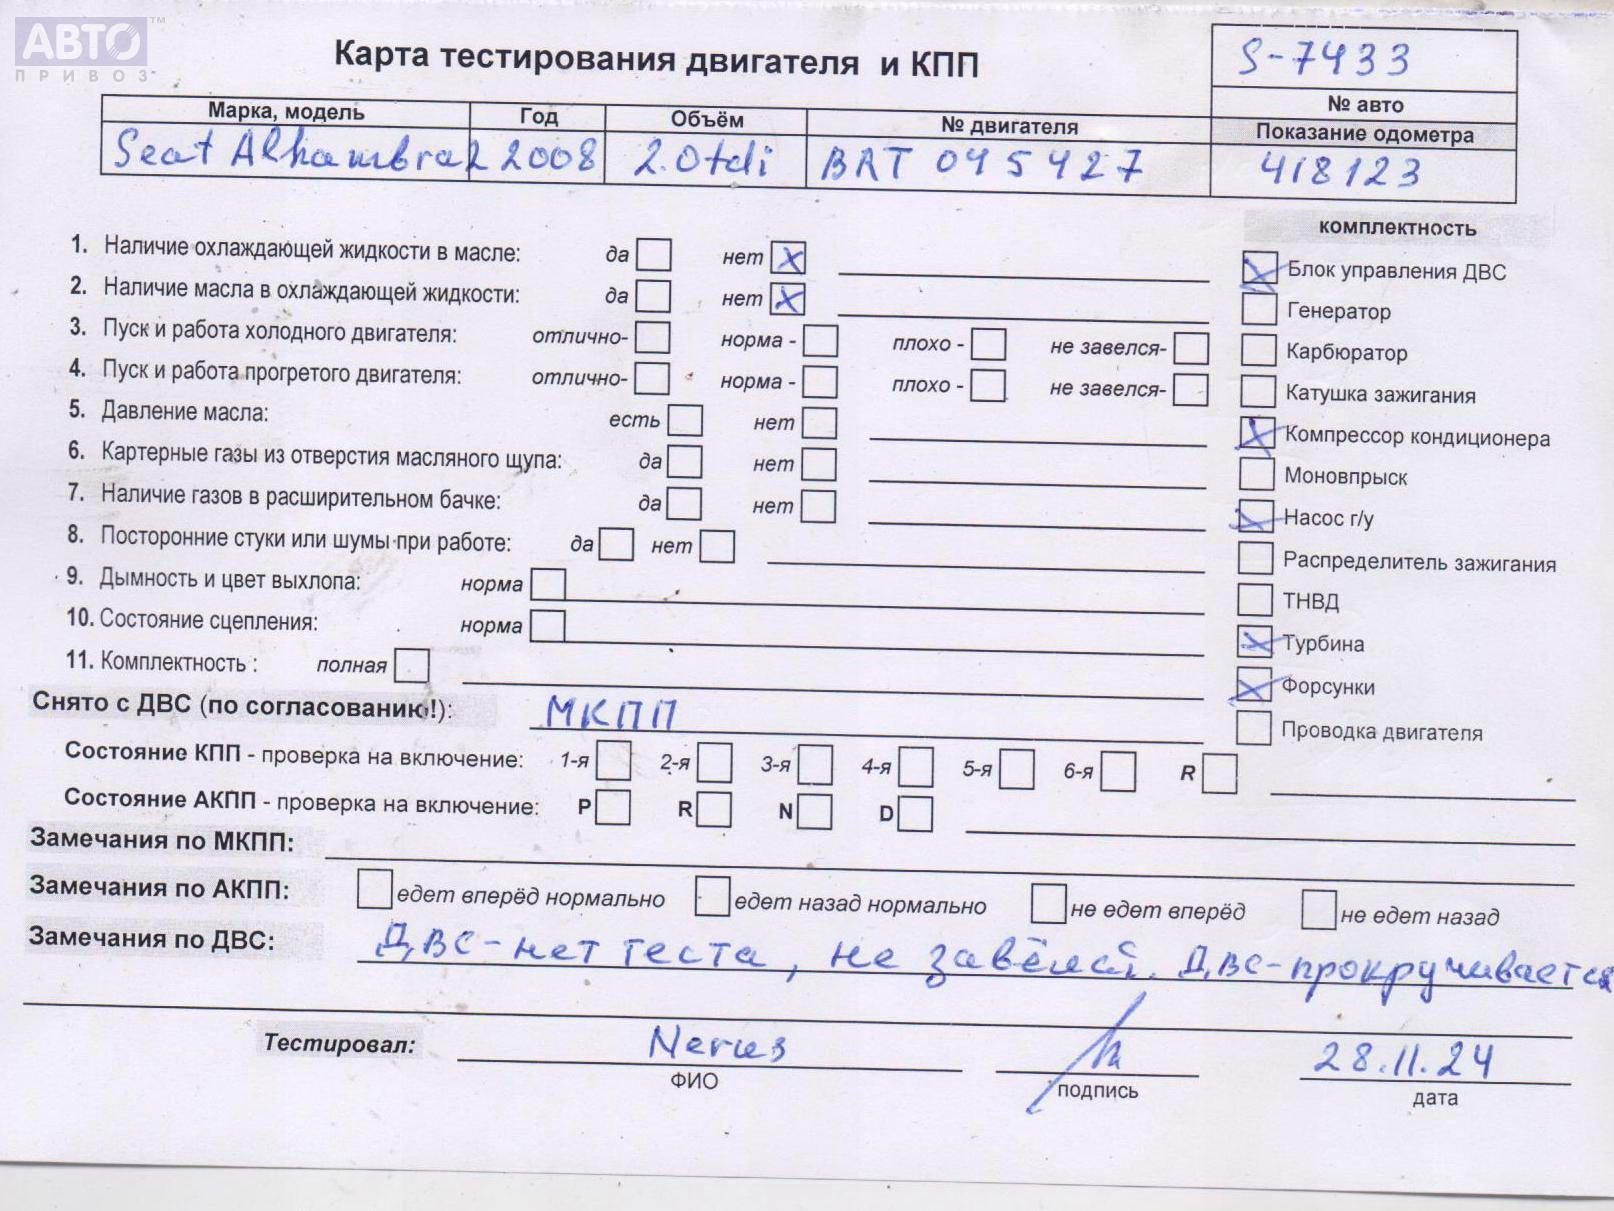 АВТО ™
ПРИВОЗ
Карта тестирования двигателя и КПП
S-7433
№ авто
Марка, модель Год Объём № двигателя Показание одометра
Seat Alhambra 2 2008 2.0tdi BRT 045427 418123
комплектность
1. Наличие охлаждающей жидкости в масле: да нет x
Блок управления ДВС
2. Наличие масла в охлаждающей жидкости: да нет x
Генератор
3. Пуск и работа холодного двигателя: отлично- норма - плохо - не завелся-
Карбюратор
4. Пуск и работа прогретого двигателя: отлично- норма - плохо - не завелся-
Катушка зажигания
5. Давление масла: есть нет
Компрессор кондиционера
6. Картерные газы из отверстия масляного щупа: да нет
Моновпрыск
7. Наличие газов в расширительном бачке: да нет
Насос г/у
8. Посторонние стуки или шумы при работе: да нет
Распределитель зажигания
9. Дымность и цвет выхлопа: норма
ТНВД
10. Состояние сцепления: норма
Турбина
11. Комплектность : полная
Форсунки
Снято с ДВС (по согласованию!): МКПП
Проводка двигателя
Состояние КПП - проверка на включение: 1-я 2-я 3-я 4-я 5-я 6-я R
Состояние АКПП - проверка на включение: P R N D
Замечания по МКПП:
Замечания по АКПП: едет вперёд нормально едет назад нормально не едет вперёд не едет назад
Замечания по ДВС: ДВС-нет теста, не завёлся. ДВС-прокручивается
Тестировал: Nerus 28.11.24
ФИО подпись дата